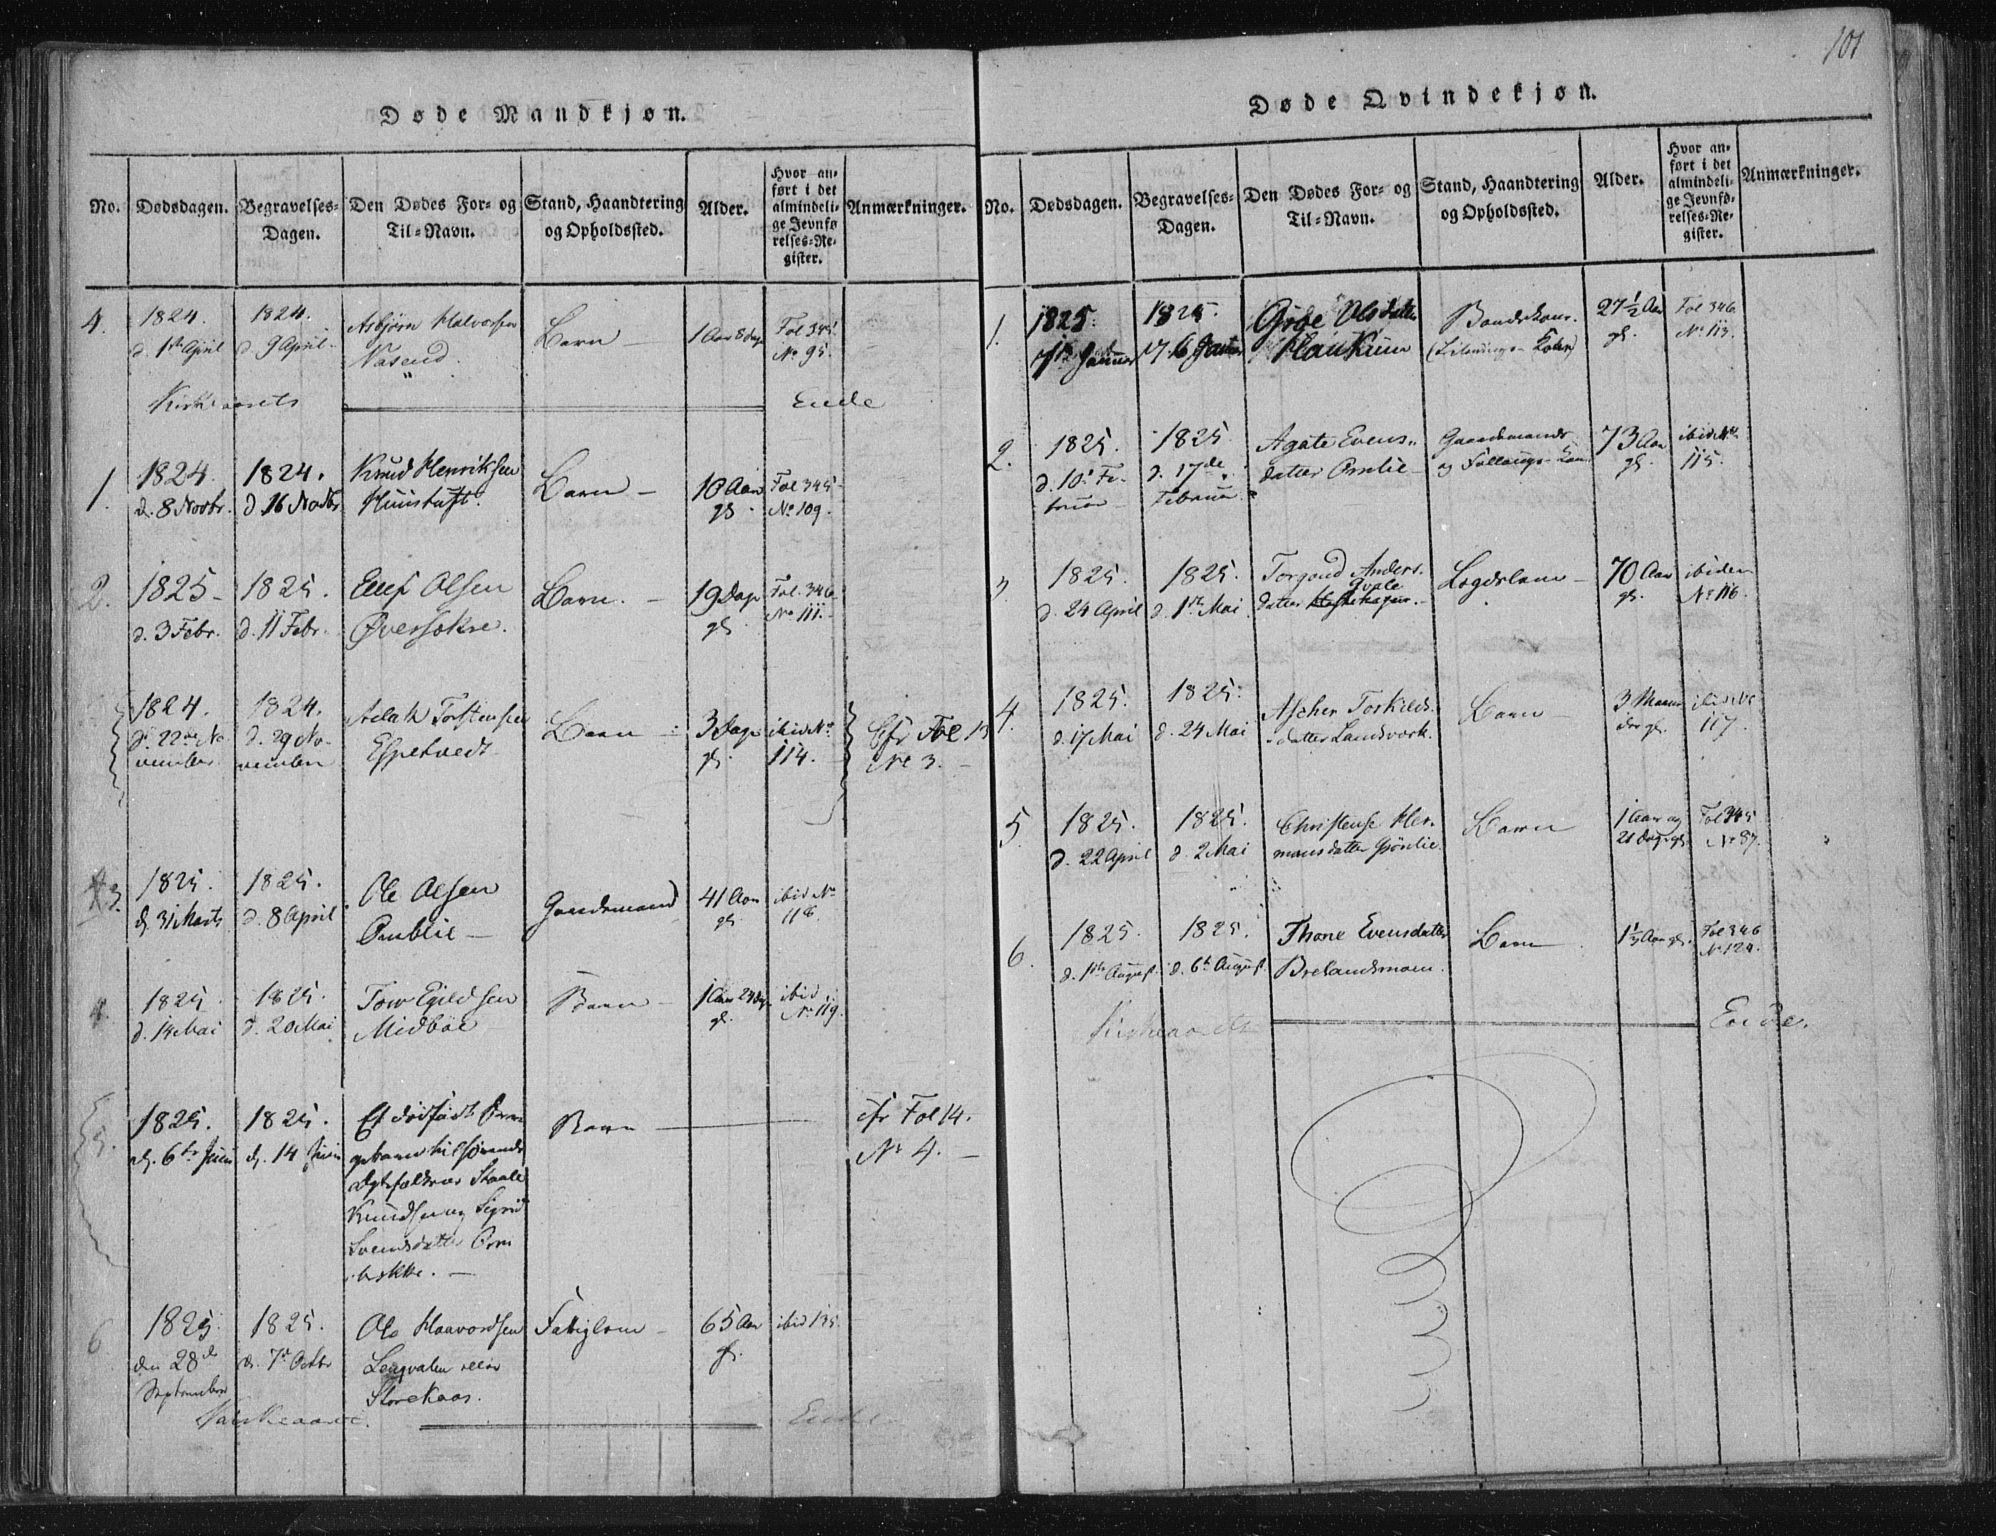 101
Døde Mandkjøn.
No.
Dødsdagen.
Begravelses-
Dagen.
Den Dødes For- og
Til-Navn.
Stand, Haandtering
og Opholdssted.
Alder.
Hvor an-
ført i det
almindeli-
ge Jevnfø-
relses-Re-
gister.
Anmærkninger.
4.
1824.
d. 1te April
1824.
d. 9 April.
Asbjørn Halvorsen
Nasend
Barn
1 Aar 8 Dage
Fol 345.
No 95.
Kirkeaarets
Ende
1.
1824.
d. 8 Novbr.
1824.
d. 16 Novbr
Knud Henriksen
Huustuft.
Barn
10 Aar
gl.
Fol 345
No 109.
2.
1825
d. 3 Febr.
1825.
d. 11 Febr.
Ellef Olsen
Øversokre.
Barn.
19 Dage
gl.
Fol. 346
No 111.
1824.
d. 22de No
vember
1824.
d. 29 No-
vember
Aslak Torstensen
Espetvedt
Barn
3 Dage
gl.
ibid No
114.
Cfr Fol 13
No 3.
3.
1825.
d. 31 Marts
1825.
d. 8 April
Ole Olsen
Omblie
Gaardmand
41 Aar
gl.
ibid No
118.
4.
1825
d. 14 Mai
1825.
d. 20 Mai
Tow Egildsen
Midbøe
Barn
1 Aar 24 Dage
gl.
ibid
No 119.
5.
1825.
d. 6te Juni
1825.
d. 14 Juni
Et dødfødt Dren
gebarn tilhørende
Ægtefolkene Staale
Knudsen og Sigrid
Svensdatter Orm
bekke.
Barn
cfr Fol 14.
No 4.
6
1825.
den 28de
September
1825.
d. 7de Octbr
Ole Haavordsen
Lengvalen eller
Storekaas.
Fattiglem
65 Aar
gl.
ibid 135.
Kirkeaaret.
Ende
Døde Qvindekjøn.
No.
Dødsdagen.
Begravelses-
Dagen.
Den Dødes For- og
Til-Navn.
Stand, Haandtering
og Opholdssted.
Alder.
Hvor an-
ført i det
almindeli-
ge Jevnfø-
relses-Re-
gister.
Anmærkninger.
1.
1825.
Januar
1825.
Groe Olsdatter
Haukum
Bondekone
27 1/2 Aar
gl.
Fol 346
No 113.
2.
1825.
d. 10de Fe-
bruar
1825
d. 17de
Februar.
Agate Evens-
datter Omlie
Gaardmands
73 Aar
gl.
ibid No
115.
3
1825.
d. 24 April
1825.
d. 1te Mai
Torgond Anders-
Qvale
datter
Lægdslem
70 Aar
gl.
ibidem
No 116.
4.
1825.
d. 17 Mai
1825.
d. 24 Mai
Ascher Torkilds-
datter Landsverk.
Barn
3 Maane
der gl.
ibid No
117.
5.
1825.
d. 22 April
1825.
d. 2 Mai
Christense Her-
mansdatter Grønlie.
Barn
1 Aar og
21 Dage gl.
Fol 345
No 87.
6.
1825.
d. 1te August.
1825.
d. 6te August.
Thone Evensdatter
Brelandsmoen.
Barn
1 1/2 Aar gl.
Fol 346
No 124.
Kirkeaarets
Ende.